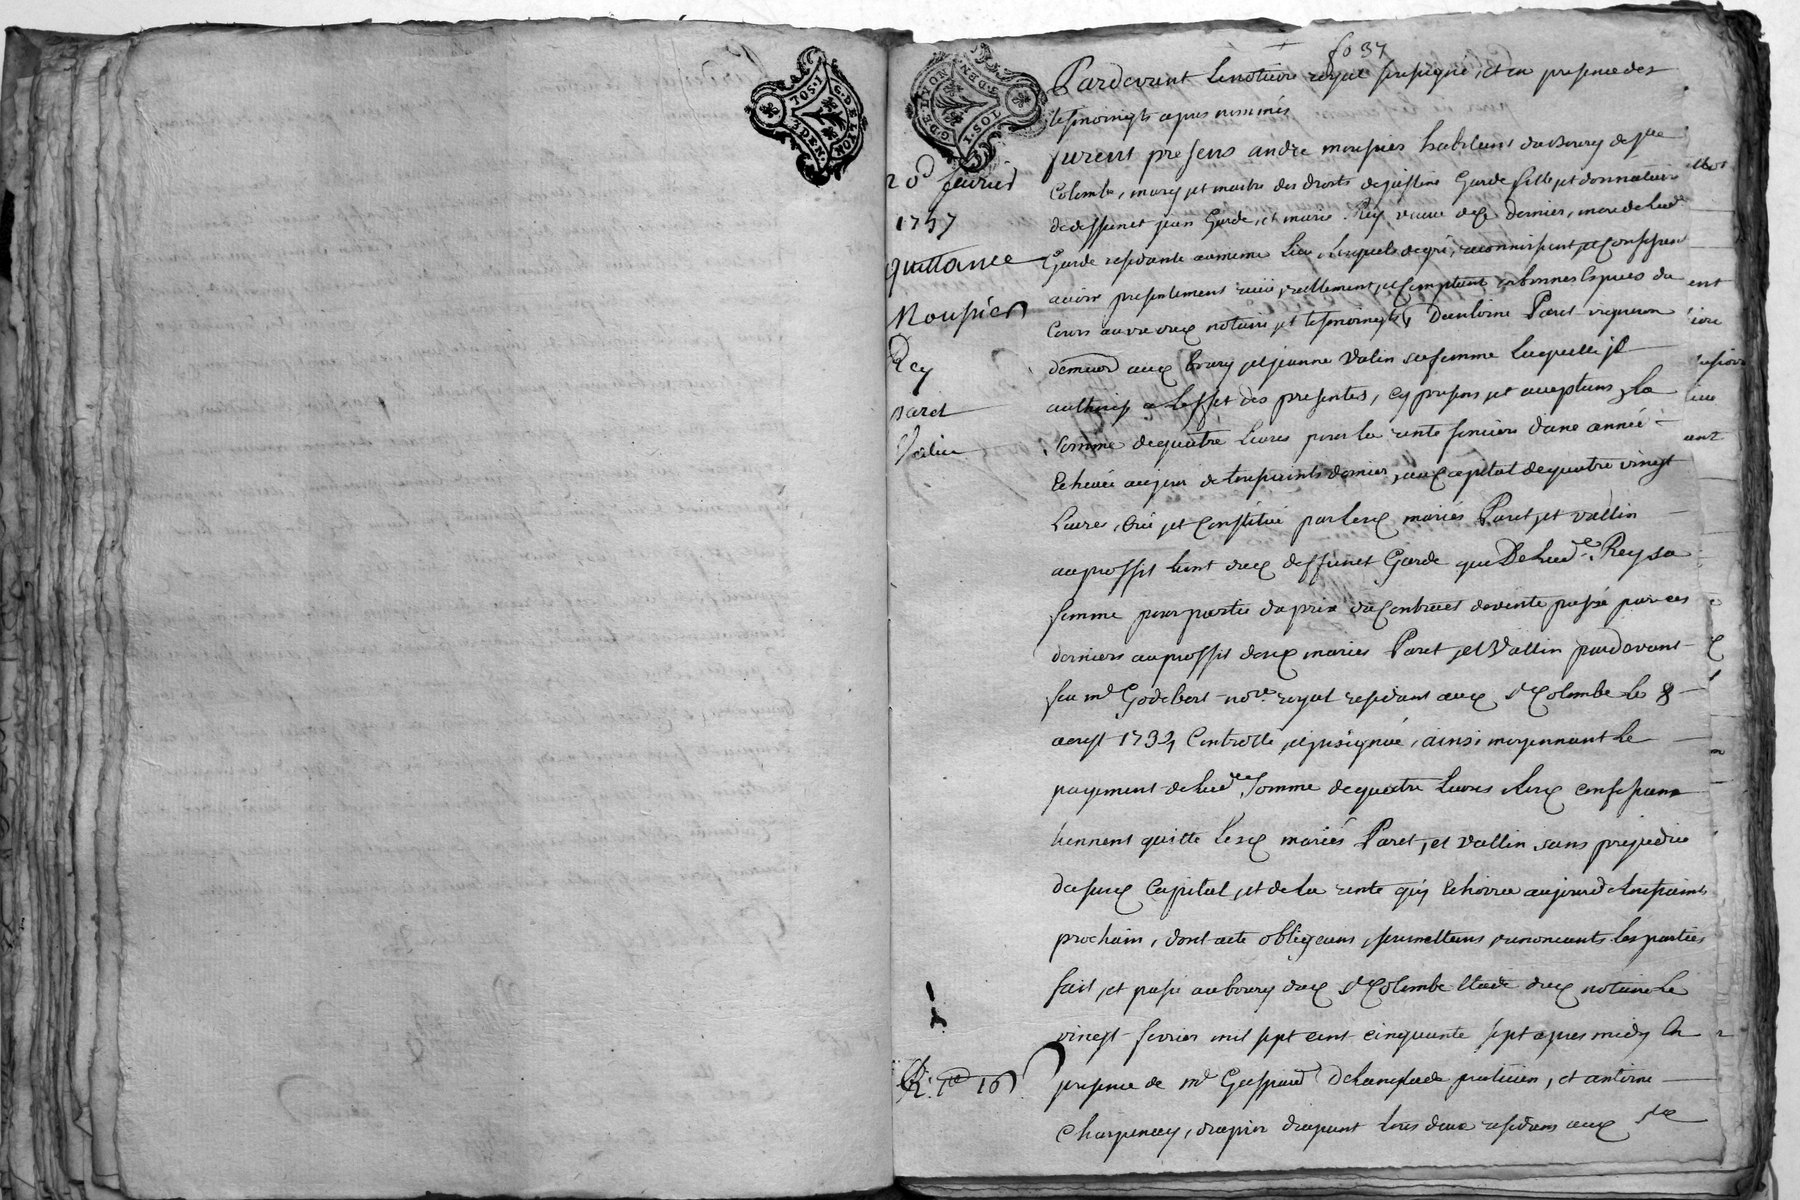 fo 37
G. DE LYON
1. SOL
DEN
Pardevant le notaire royal soussigné, et en presence des
tesmoingts apres nommés
furent presens andré mousnier habitant du bourg de Ste
Colombe, mary et maitre des droits de justine Garde fille et donnataire
de deffunct jean Garde, et marie Rey veuve dud dernier, mere de lad
Garde residante au meme lieu, lesquels de gré, reconnoissent et confessent
avoir presentement reçu, reellement, et comptant en bonnes especes du
Cours au vu dud notaire et tesmoingts, d'antoine Paret vigneron
demeurt aud bourg et jeanne Valin sa femme laquelle il
authorise a leffet des presentes, cy presens et acceptans, la
somme de quatre Livres pour la rente fonciere d'une année
Echeuë au jour de toussaints dernier, au capital de quatre vingt
Livres, Créé et Constitué par lesd mariés Paret, et Vallin
au proffit tant dud deffunct Garde que De lade Rey sa
femme pour partie du prix du Contract de vente passé par ces
derniers au proffit desd mariés Paret, et Vallin pardevant
feu me Godebert nore royal residant aud Ste Colombe le 8
aoust 1734 Controllé, et insignué, ainsi moyennant le
payement de lade somme de quatre Livres lesd confessans
tiennent quitte lesd mariés Paret, et Vallin sans prejudice
du susd Capital, et de la rente qui Echoirra au jour de toussaints
prochain, dont acte obligeans, soumettans, renonceants les parties
fait, et passé au bourg dud Ste Colombe Etude dud notaire le
vingt fevrier mil sept cent cinquante sept apres midy En
presence de me Gaspard Delanglade praticien, et antoine
Charpenay, drapier drapant tous deux residans aud Ste
20d fevrier
1757
quittance
Mousnier
Rey
paret
Valin